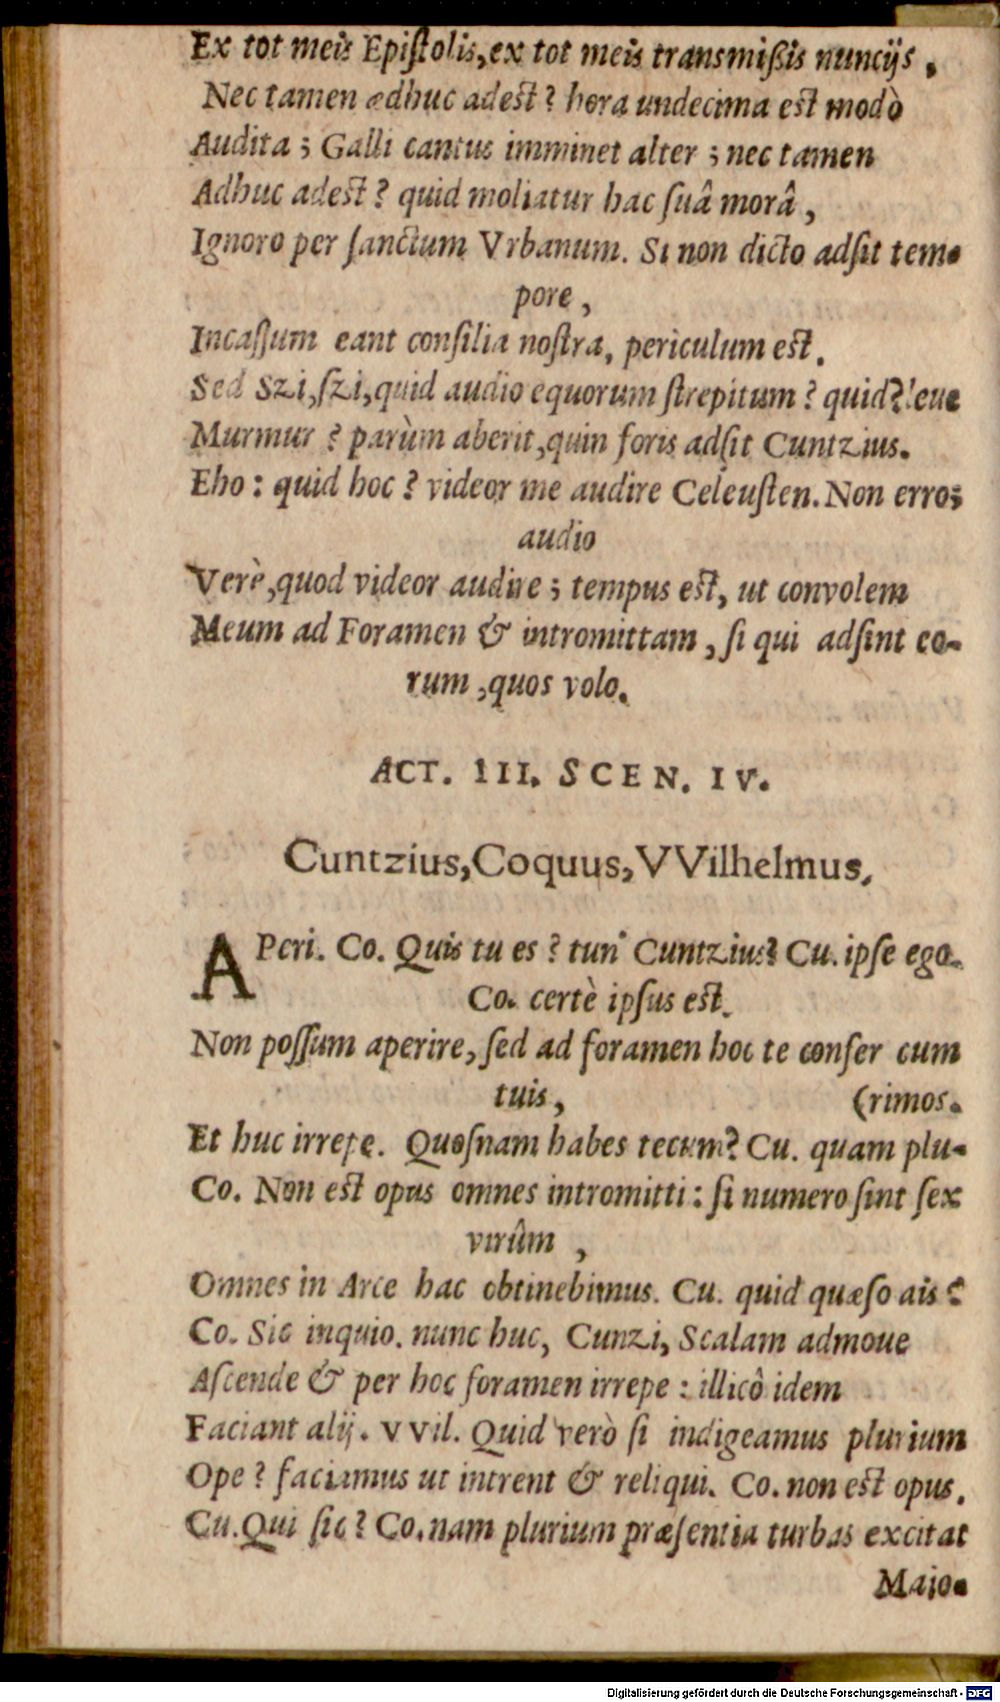 Ex tot meis Epiſtolis, ex tot meis transmiſsis nuncijs,
Nec tamen adhuc adest? hora undecima est modò
Audita; Galli cantus imminet alter; nec tamen
Adhuc adest? quid moliatur hac ſuâ morâ,
Ignoro per ſanctum Vrbanum. Si non dicto adſit tem-
pore,
Incaſſum eant conſilia noſtra, periculum est.
Sed Szi, ſzi, quid audio equorum ſtrepitum? quid? leue
Murmur? parùm aberit, quin foris adſit Cuntzius.
Eho: quid hoc? videor me audire Celeuſten. Non erro;
audio
Verè, quod videor audire; tempus est, ut convolem
Meum ad Foramen & intromittam, ſi qui adſint eo-
rum, quos volo.
ACT. III. SCEN. IV.
Cuntzius, Coquus, VVilhelmus.
APeri. Co. Quis tu es? tun' Cuntzius? Cu. ipſe ego.
Co. certè ipſus est.
Non poſſum aperire, ſed ad foramen hoc te confer cum
tuis, (rimos.
Et huc irrepe. Quoſnam habes tecum? Cu. quam plu-
Co. Non est opus omnes intromitti: ſi numero ſint ſex
virûm,
Omnes in Arce hac obtinebimus. Cu. quid quæſo ais?
Co. Sic inquio. nunc huc, Cunzi, Scalam admoue
Aſcende & per hoc foramen irrepe: illicò idem
Faciant alij. VVil. Quid verò ſi indigeamus plurium
Ope? faciamus ut intrent & reliqui. Co. non est opus.
Cu. Qui ſic? Co. nam plurium præſentia turbas excitat
Maio-
Digitalisierung gefördert durch die Deutsche Forschungsgemeinschaft - DFG